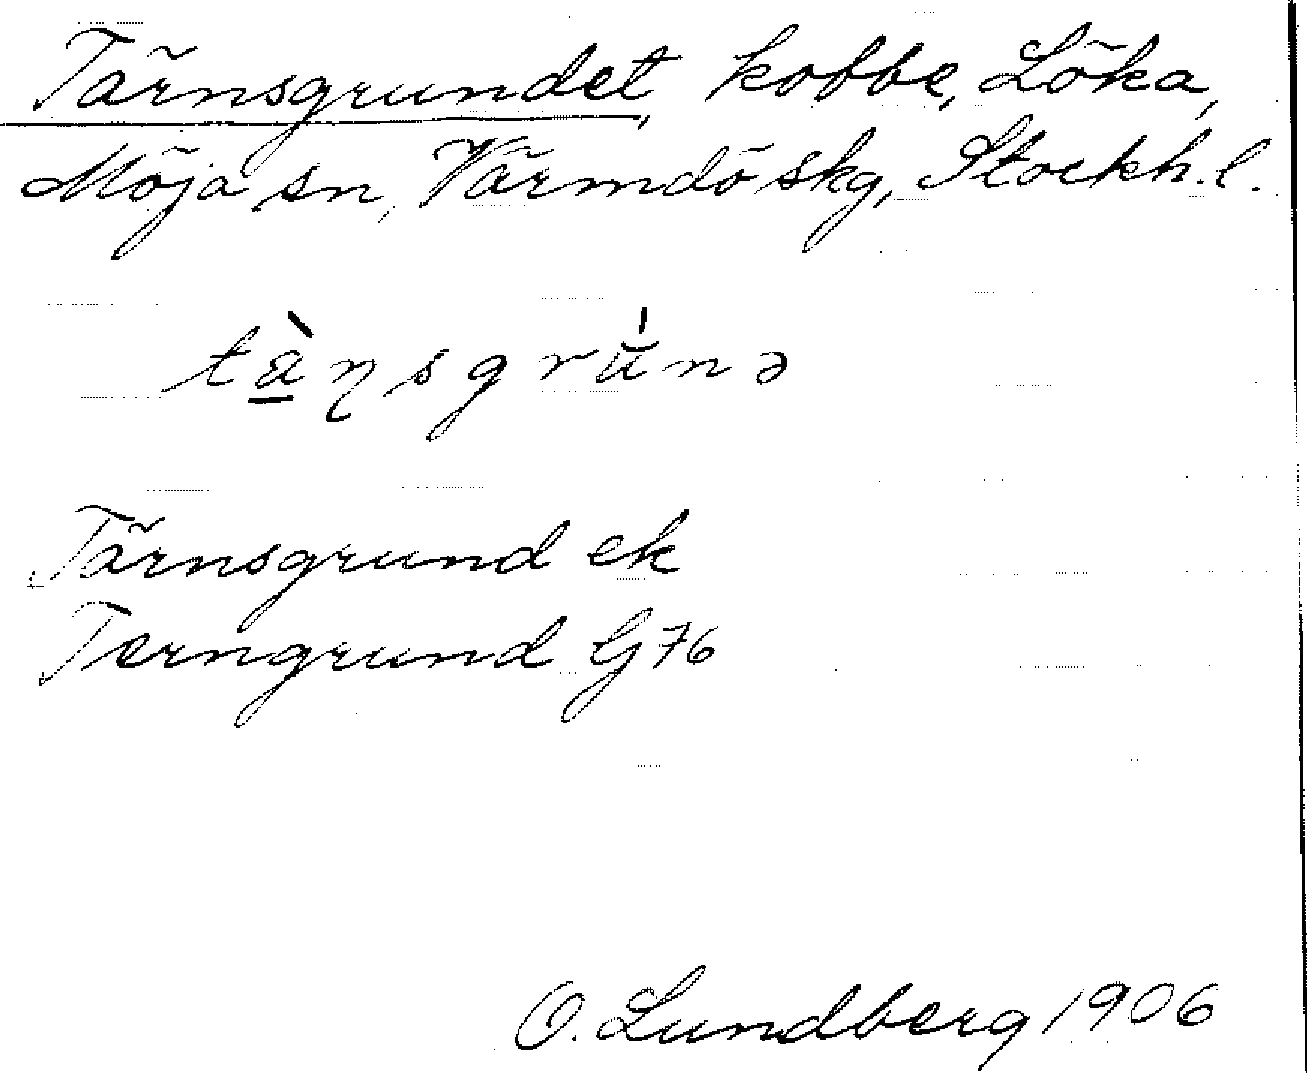 Tärnsgrundet, kobbe, Löka,
Möja sn, Värmdö skg, Stockh. l.
tà̱ɳsgrŭ́nə
Tärnsgrund ek
Terngrund G 76
O. Lundberg 1906